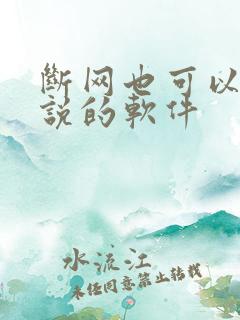 斷网也可以
説的軟件
水流江
未经同意禁止转载